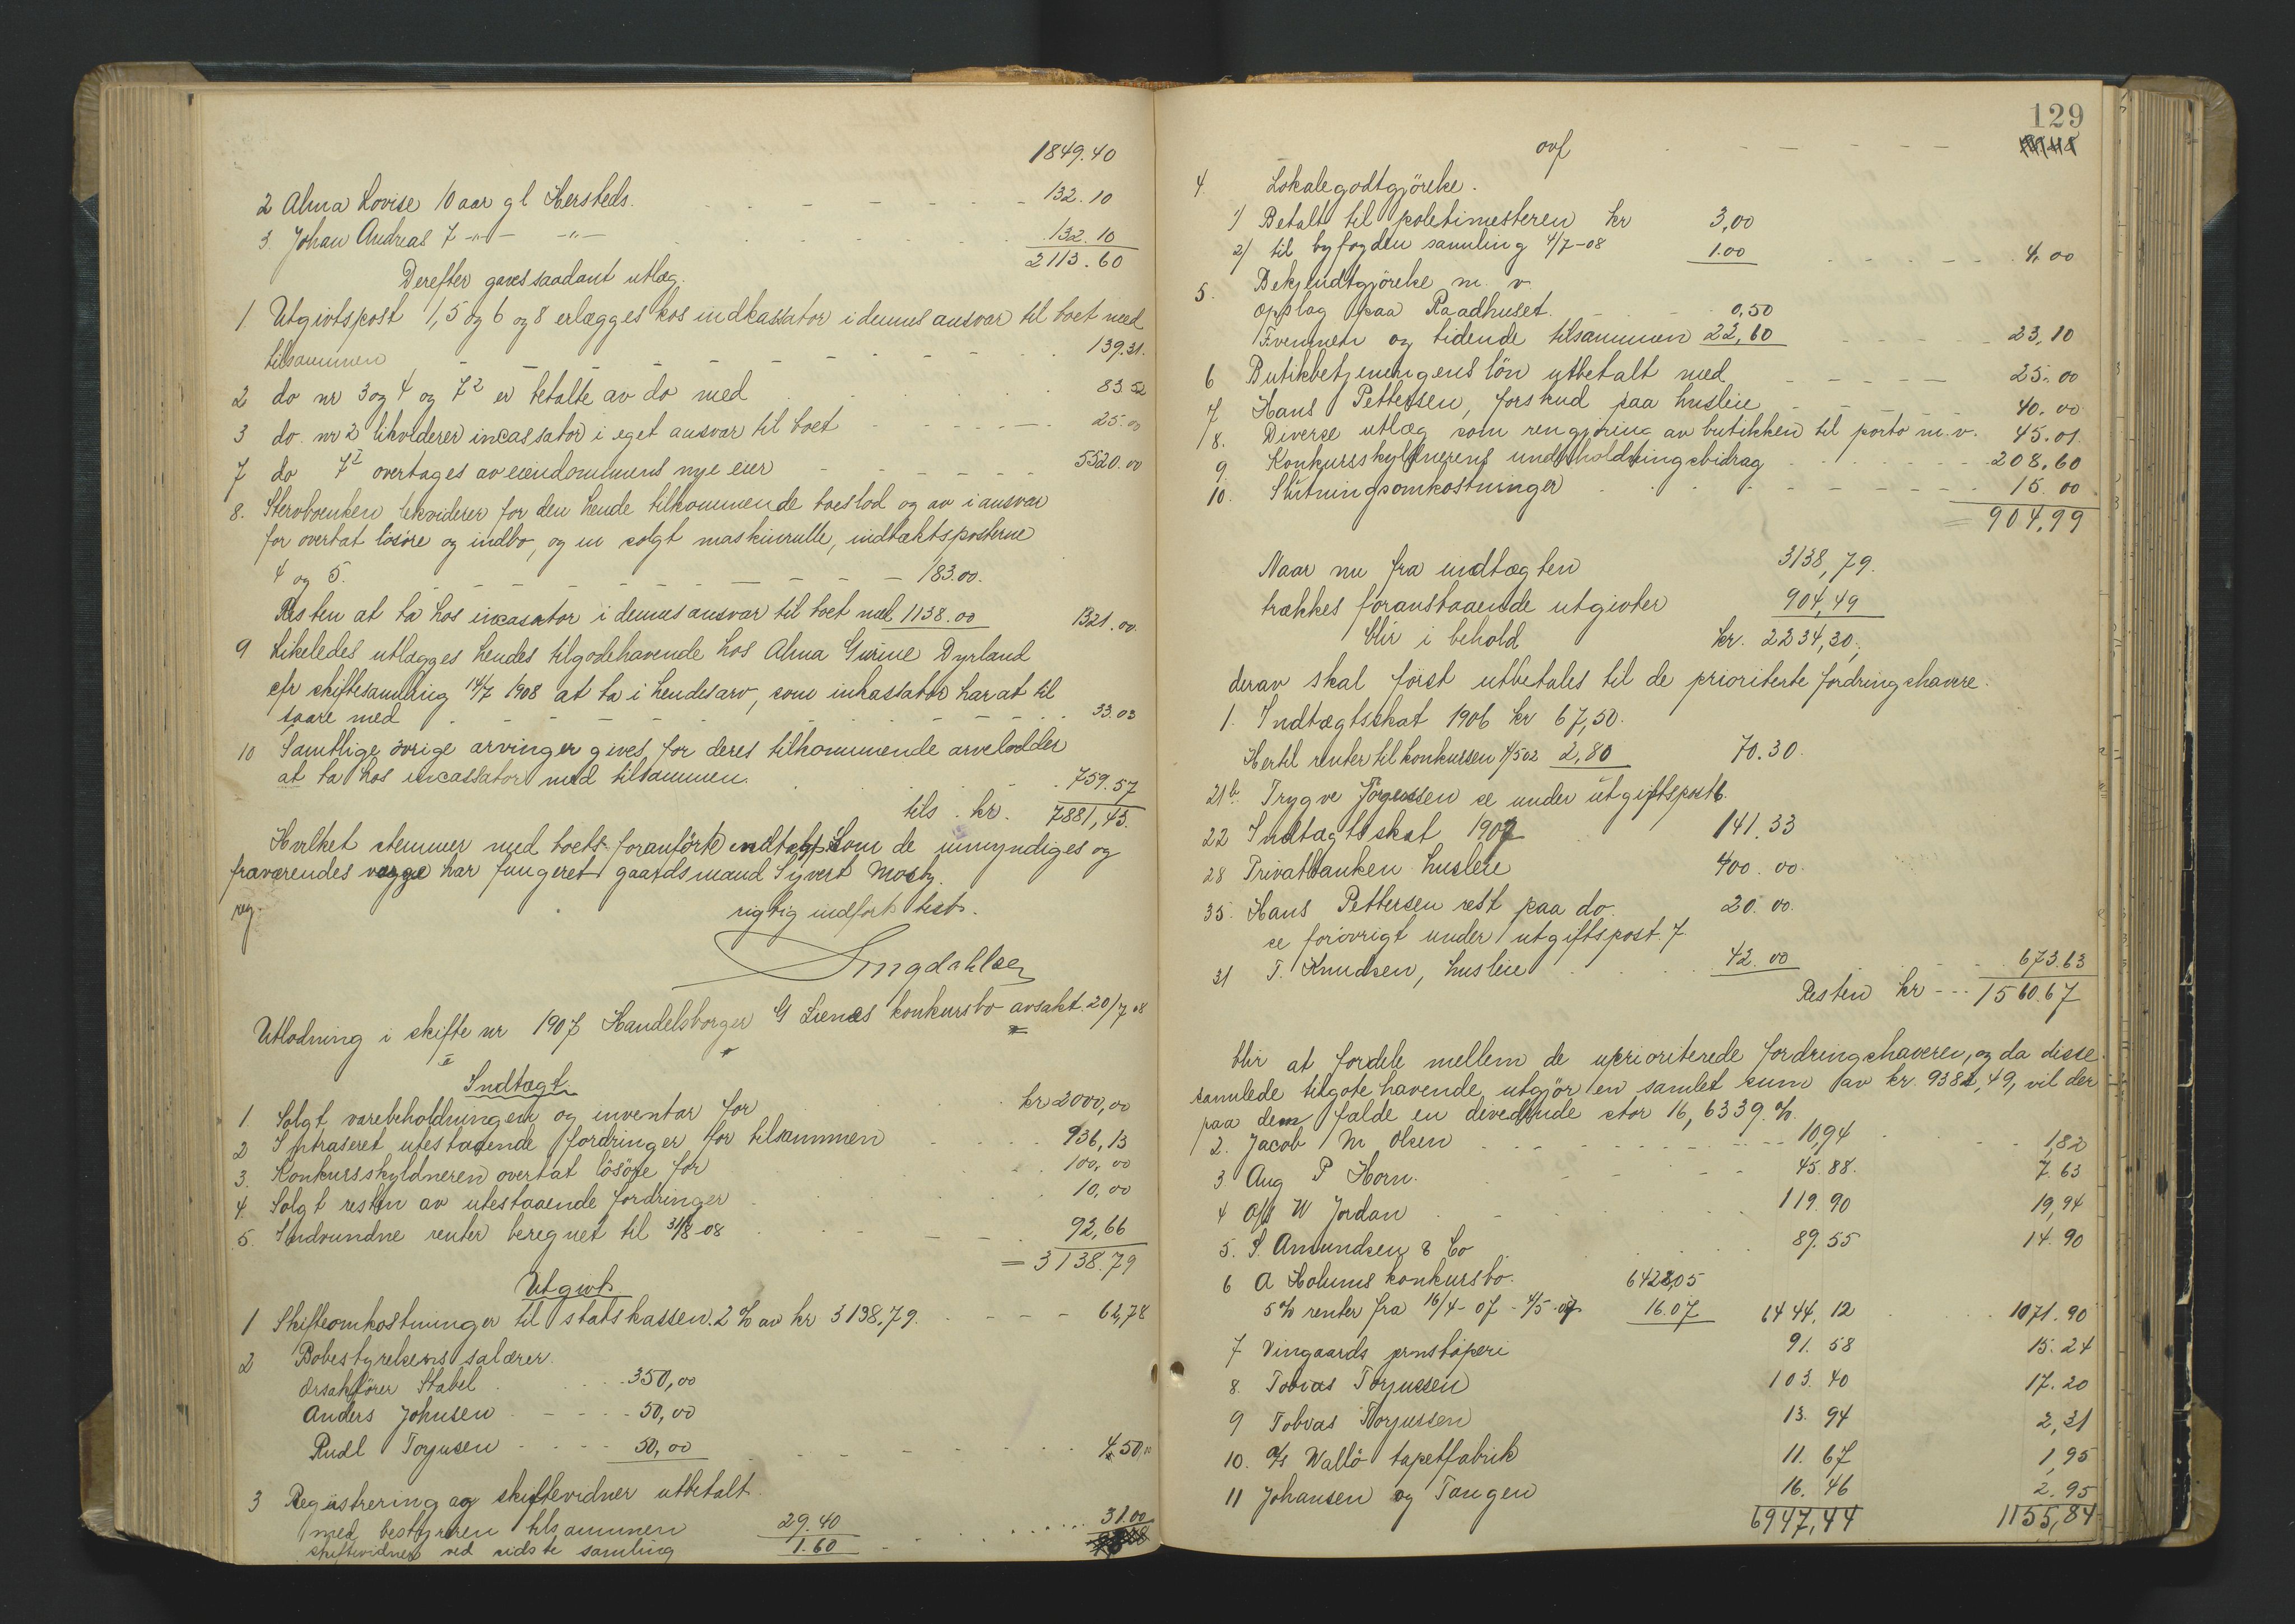 1849.40
2 Alma Lovise 10 aar gl Hersteds. 132.10
3. Johan Andreas 7 -"- -"- 132.10
2113.60
Derefter gaves saadant utlæg.
1 Utgivtspost 1, 5 og 6 og 8 erlægges hos indkassator i dennes ansvar til boet med
tilsammen 139.31.
2 do nr 3 og 4 og 7² er betalte av do med 83.52
3 do. nr 2 likviderer incassator i eget ansvar til boet 25.00
7 do 7¹ overtages av eiendommens nye eier 5520.00
8. Stervboenken likviderer for den hende tilkommende boeslod og av i ansvar
for overtat løsøre og indbo, og en solgt maskinrulle, indtæktsposterne
4 og 5. 183.00.
Resten at ta hos incasator i dennes ansvar til boet med 1138.00 1321.00.
9 Likeledes utlægges hendes tilgodehavende hos Alma Gurine Dyrland
cfr skiftesamling 14/7 1908 at ta i hendes arv, som inkassator har at til
svare med 33.03
10 Samtlige övrige arvinger gives for deres tilkommende arvelodder
at ta hos incassator med tilsammen. 759.57
tils. kr. 7881,43.
Hvilket stemmer med boets foranførte indtægt. Som de umyndiges og
fraværendes værge har fungeret gaardsmand Syvert Mosby.
reg. rigtig indført test.
Utlodning i skifte nr 1907 Handelsborger G Lienes konkursbo avsakt. 20/7 08
Indtægt
1. Solgt varebeholdningen og inventar for kr 2000,00
2 Indkasseret utestaaende fordringer for tilsammen 936,13
3. Konkursskyldneren overtat lösöre for 100,00
4. Solgt resten av utestaaende fordringer 10,00
5. Indvundne renter beregnet til 31/8-08 92,66
= 3138.79
Utgivt
1 Skifteomkostninger til statskassen. 2 % av kr 3138,79. 62,78
2 Bobestyrelsens salærer.
Orsakförer Stabel 350,00
Anders Johnsen 50,00
Rudl Torjusen 50,00 450,00
3 Registrering og skiftevidner utbetalt.
med bestyreren tilsammen 29.40 31.00
skiftevidner ved sidste samling 1.60
129
ovf
4. Lokalegodtgjörelse.
1) Betalt til politimesteren kr 3,00
2) til byfogden samling 4/7-08 1.00 4.00
5. Bekjendtgjörelse m. v.
opslag paa Raadhuset. 0,50
Fvennen og tidende tilsammen 22,60 23,10
6 Butikbetjeningens lön utbetalt med 25.00
7 Hans Pettersen, forskud paa husleie 40.00
8. Diverse utlæg som rengjöring av butikken til porto m. v. 45.01
9 Konkursskyldnerens underholdningsbidrag 208.60
10. Slutningsomkostninger 15.00
= 904,99
Naar nu fra indtægten 3138,79.
trækkes foranstaaende utgivter 904,49
blir i behold kr. 2234,30,
derav skal först utbetales til de prioriterte fordringshavere.
1. Indtægtsskat 1906 kr 67,50.
Hertil renter til konkursen 4/5 02 2,80 70.30.
21b. Trygve Jörgensen se under utgiftspost 6.
22 Indtægtsskat 1907 141.33
28 Privatbanken husleie 400.00.
35. Hans Pettersen rest paa do. 20.00.
se forövrigt under utgiftspost. 7.
31 T. Knudsen, husleie 42.00 673.63
Resten kr 1560.67
blir at fordele mellem de uprioriterede fordringshavere, og da disse
samlede tilgotehavende utgjör en samlet sum av kr. 9382,49, vil der
paa dem falde en devedende stor 16,6339 %.
2. Jacob M Olsen 10,94 1,82
3 Aug P Horn. 45.88. 7.63
4 A/s W Jordan 119.90 19,94
5. S. Amundsen & Co 89.55 14.90
6 A Holums konkursbo. 6428,05
5 % renter fra 16/4-07 - 4/5-07 16.07 6444,12 1071.90
7 Vingaards jernstöperi 91.58 15.24
8. Tobias Torjussen 103.40 17.20
9 Tobias Torjussen 13.94 2,31
10. A/s Wallö tapetfabrik 11.67 1,95
11 Johansen og Tangen 16.46 2.95
6947,44 1155,84